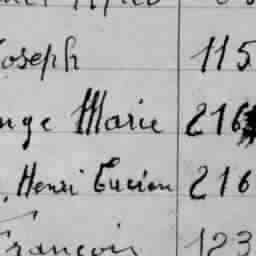 Joseph 115
nge Marie 216
, Henri Lucien 216
François 123